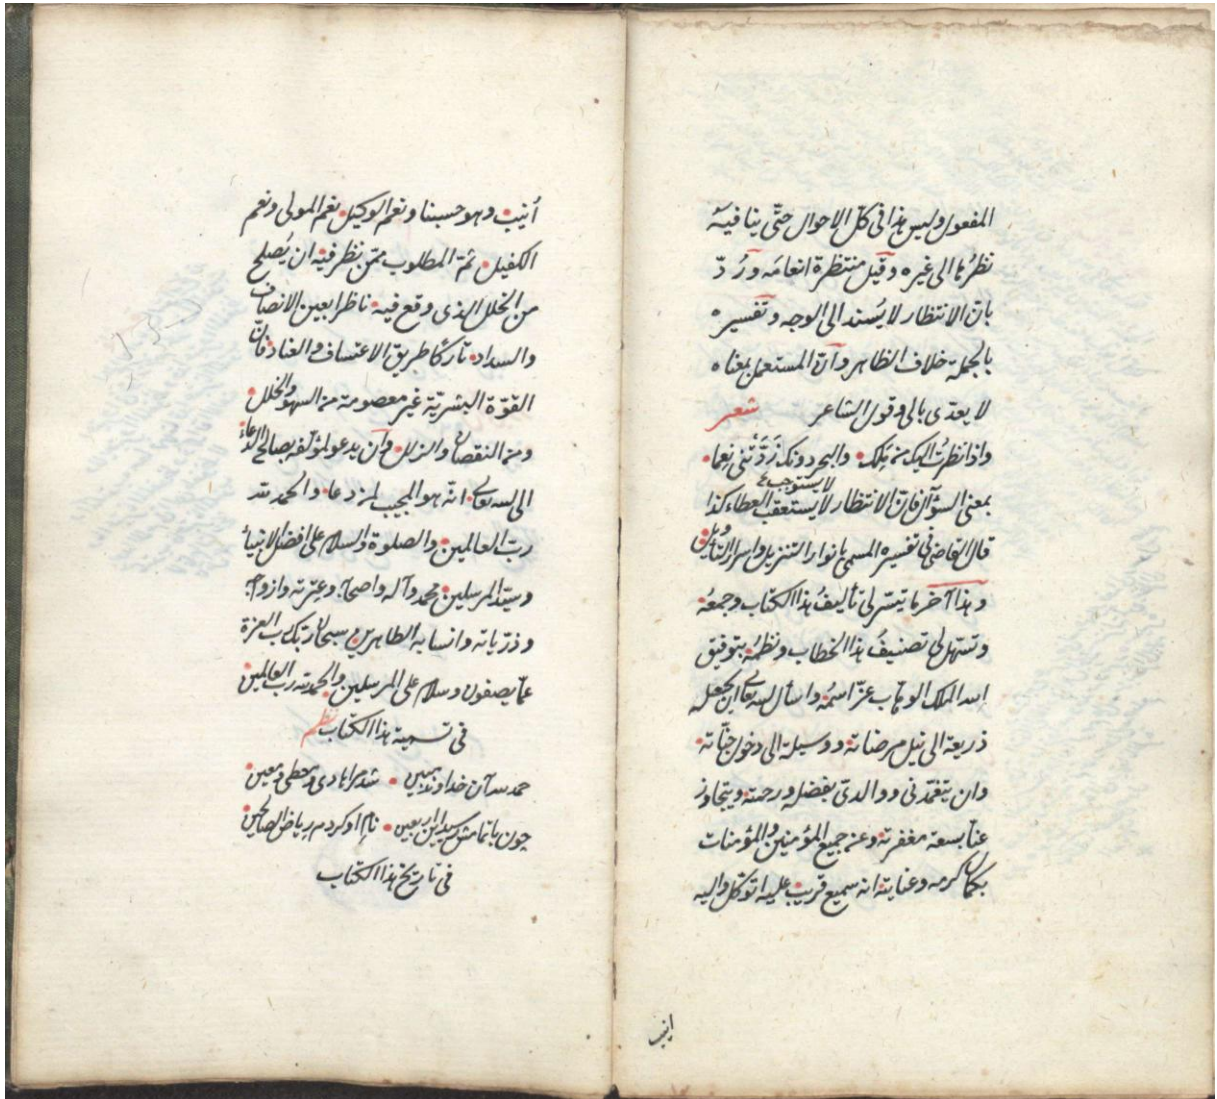 المفعول وليس هذا فى كلّ الاحوال حتّى ينافيه
نظرُها الى غيره وقيل منتظرة انعامَه ورُدّ
بانّ الانتظار لا يُسند الى الوجه وتفسيره
بالجملة خلاف الظاهر وانّ المستعمل بمعناه
لا يعدّى بالى وقول الشاعر شعر
واذا نظرتُ اليك من ملك • والبحر دونك زَدتَنى نِعما •
لا يستوجب
بمعنى السؤآل فانّ الانتظار لا يستعقب العطاء كذا
قال القاضى فى تفسيره المسمى بانوار التنزيل واسرار التأويل
وهذا آخر ما تيسّر لى تأليفُ هذا الكتاب وجمعُه
وتسهل لى تصنيفُ هذا الخطاب ونظمُه بتوفيق
الله الملك الوهاب عزّ اسمُه واسأل الله تعالى ان يجعله
ذريعة الى نيل مرضاته • ووسيلة الى دخول جنّاته •
وان يتغمّدنى ووالدىّ بفضله ورحمته ويتجاوز
عنّا بسعة مغفرته وعن جميع المؤمنين والمؤمنات
بكمال كرمه وعنايته انه سميع قريب عليه اتوكل واليه
انيب
اُنيب • وهو حسبنا ونعم الوكيل • نعم المولى ونعم
الكفيل • ثمّ المطلوب ممّن نظر فيه ان يُصلح
من الخلل الذى وقع فيه • ناظرا بعين الانصاف
والسداد • تاركًا طريق الاعتساف والعناد • فانّ
القوّة البشريّة غير معصومة من السهو والخلل •
ومن النقصان والزلل • وان يدعو لمؤلّفه بصالح الدعاء
الى الله تعالى • انّه هو المجيب لمن دعا • والحمد لله
ربّ العالمين • والصلوة والسلام على افضل الانبياء
وسيّد المرسلين • محمد وآله واصحابه وعترته وازواجه
وذرّياته وانسابه الطاهرين • سبحان ربّك ربّ العزة
عمّا يصفون وسلام على المرسلين • والحمد لله ربّ العالمين •
فى تسمية هذا الكتاب نظم
حمد لله آن خداوند مبين • شد مرا هادى ومعطى ومعين •
چون باتمامش رسيد اين اربعين • نام او كردم رياض الصالحين •
فى تاريخ هذا الكتاب